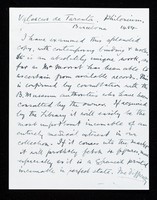 Valascus de Tarenta, Philonium,
Barcelona 1484.
I have examined this splendid
copy, with contemporary binding & works.
It is an absolutely unique work, as
far as Mr Moorat has been able to
ascertain from available records. This
is confirmed by consultation with the
B. Museum authorities who have been
consulted by the owner. If acquired
by the Library it will easily be the
most important incunable of an
entirely medical interest in our
collection. If it comes into the market
it will probably fetch a
especially as it is a Spanish printed
incunable in perfect state.